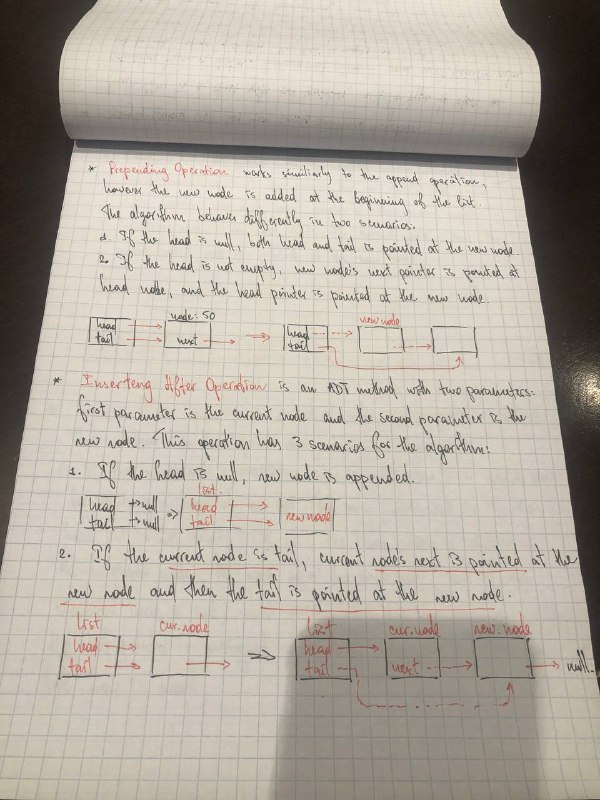 * Prepending Operation works similiarly to the append operation,
however the new node is added at the beginning of the list.
The algorithm behaves differently in two scenarios:
1. If the head is null, both head and tail is pointed at the new node.
2. If the head is not empty, new node's next pointer is pointed at
head node, and the head pointer is pointed at the new node.
node: 50
new node
head
tail
next
head
tail
* Inserteng After Operation is an ADT method with two parameters:
first parameter is the current node and the second parameter is the
new node. This operation has 3 scenarios for the algorithm:
1. If the head is null, new node is appended.
list.
head → null
tail → null
⇒
head
tail
new node
2. If the current node is tail, current node's next is pointed at the
new node and then the tail is pointed at the new node.
list
cur. node
list
cur. node
new. node
head
tail
head
tail
next
null.